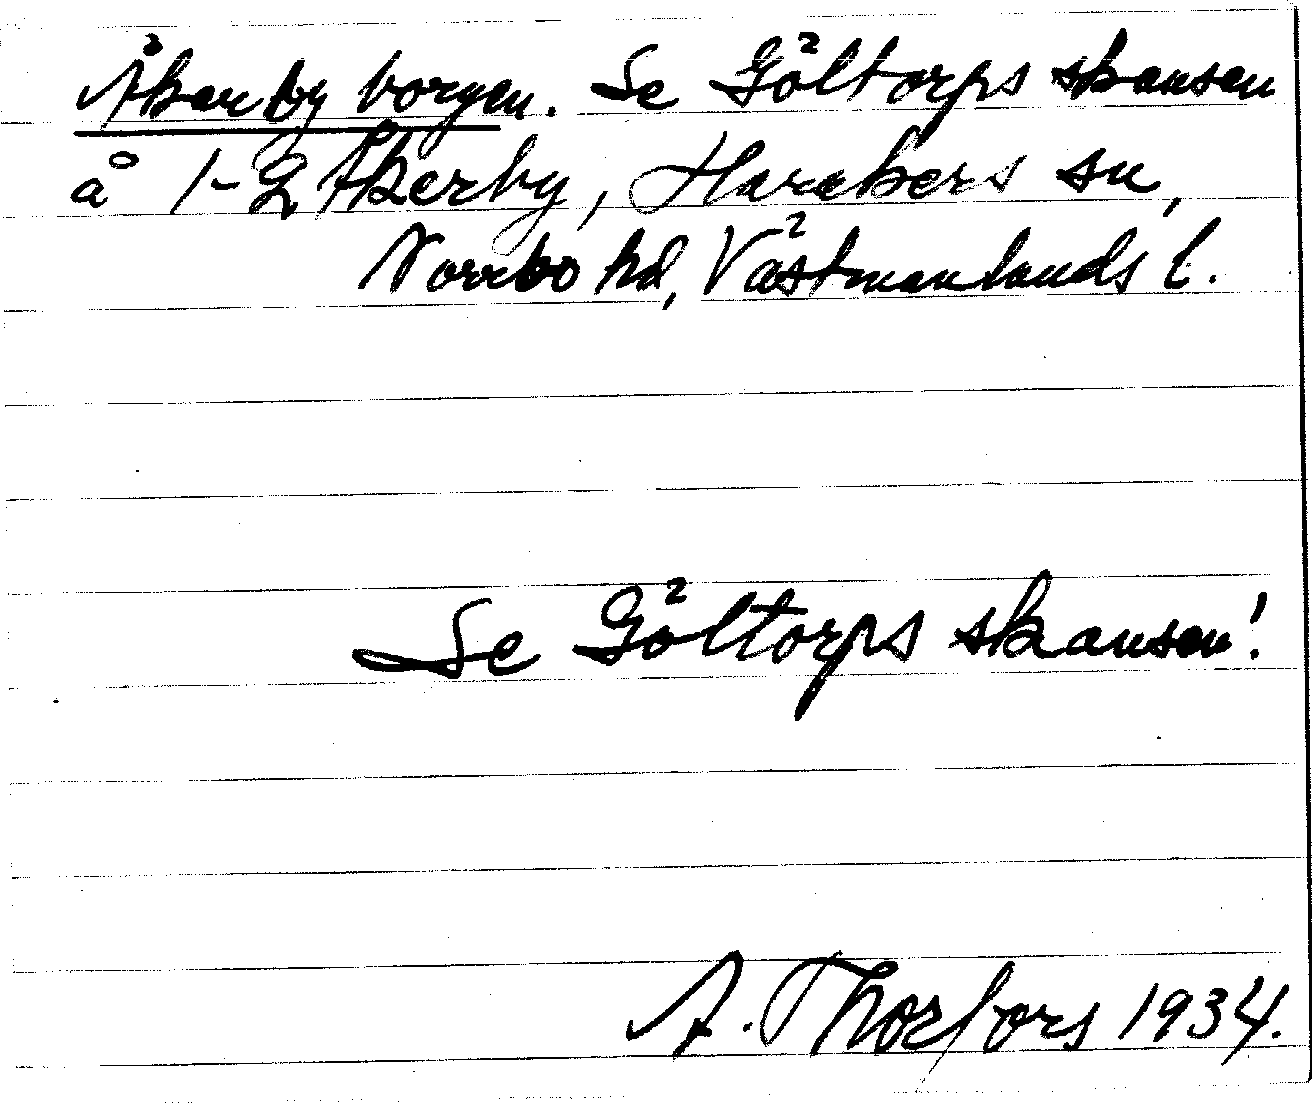 Åkerby borgen. Se Göltorps skansen
å 1-2 Åkerby, Harakers sn,
Norrbo hd, Västmanlands l.
Se Göltorps skansen!
A. Thorfors 1934.